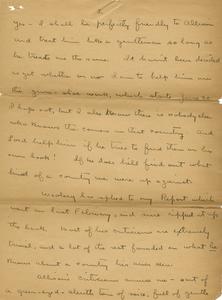 yes - I shall be perfectly friendly to Allison
and treat him like a gentleman so long as
he treats me the same. It hasn't been decided
yet whether or no I am to help him on
the gum-shoe work, which starts June 20
I hope not, but I also know there is nobody else
who knows the canons in that country and
Lord help him if he tries to find them on his
own hook! If he does he'll find out what
kind of a country we were up against.
Woolsey has replied to my Report which
went in last February, and more ripped it up
the back. Most of his criticisms are extremely
trivial, and a lot of the art founded on what he
knows about a country his never seen.
Allison's criticisms amuse me - sort of
a green-eyed-sleuth tone of voice, full of gentle